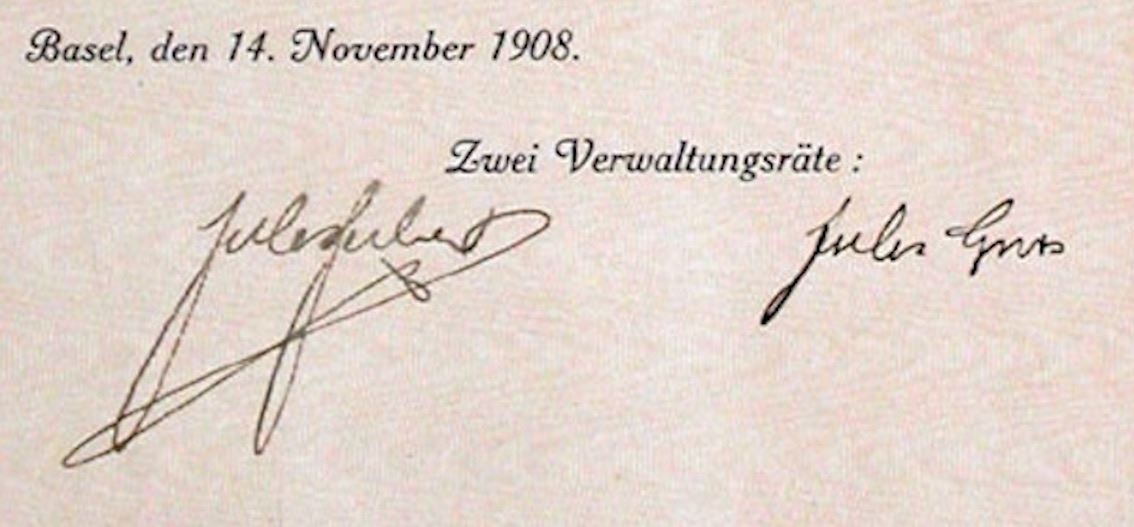 Basel, den 14. November 1908.
Zwei Verwaltungsräte :
Jules Jules